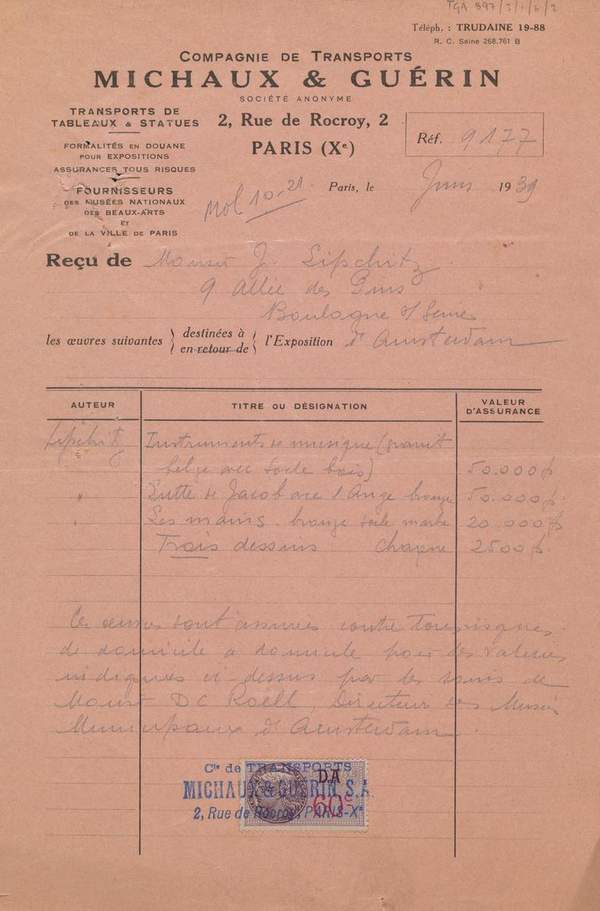 TGA 897/2/1/6/2
Téléph. : TRUDAINE 19-88
R. C. Seine 268.761 B
COMPAGNIE DE TRANSPORTS
MICHAUX & GUÉRIN
SOCIÉTÉ ANONYME
TRANSPORTS DE
TABLEAUX & STATUES
FORMALITÉS EN DOUANE
POUR EXPOSITIONS
ASSURANCES TOUS RISQUES
FOURNISSEURS
DES MUSÉES NATIONAUX
DES BEAUX-ARTS
ET
DE LA VILLE DE PARIS
2, Rue de Rocroy, 2
PARIS (Xe)
Réf. 9177
Mol 10-21
Paris, le Juin 1939
Reçu de Monsr J. Lipchitz
9 Allée des Pins
Boulogne s/ Seine
les œuvres suivantes destinées à en retour de l'Exposition d'Amsterdam
AUTEUR TITRE OU DÉSIGNATION VALEUR D'ASSURANCE
Lipchitz Instruments de musique (granit
belge avec socle bois) 50.000 f
" Lutte de Jacob avec l'Ange bronze 50.000 f
" Les mains bronze socle marbre 20 000 f
Trois dessins chaque 2500 f
Ces œuvres sont assurées contre tous risques
de domicile à domicile pour les valeurs
indiquées ci dessus par les soins de
Monsr D C Roëll, Directeur des Musées
Municipaux d'Amsterdam
Cie de TRANSPORTS
MICHAUX & GUÉRIN S.A.
2, Rue de Rocroy, PARIS-Xe
DA
60c